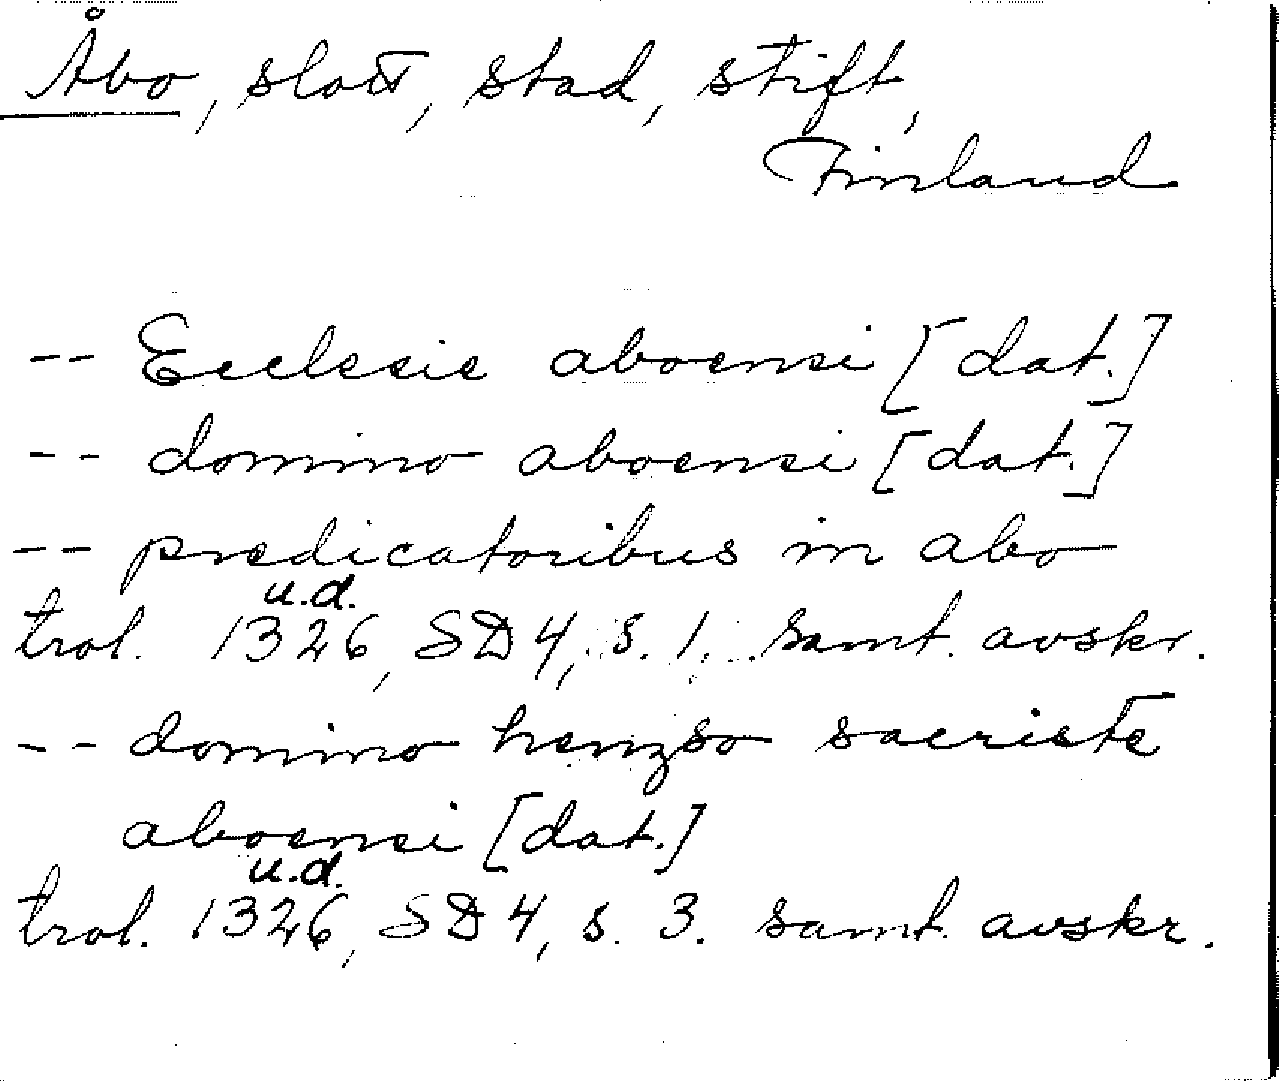 Åbo, slott, stad, stift,
Finland
-- Ecclesie aboensi [dat.]
-- domino aboensi [dat.]
-- predicatoribus in abo
u.d.
trol. 1326, SD 4, s. 1. samt. avskr.
-- domino henzso sacriste
aboensi [dat.]
u.d.
trol. 1326, SD 4, s. 3. samt. avskr.